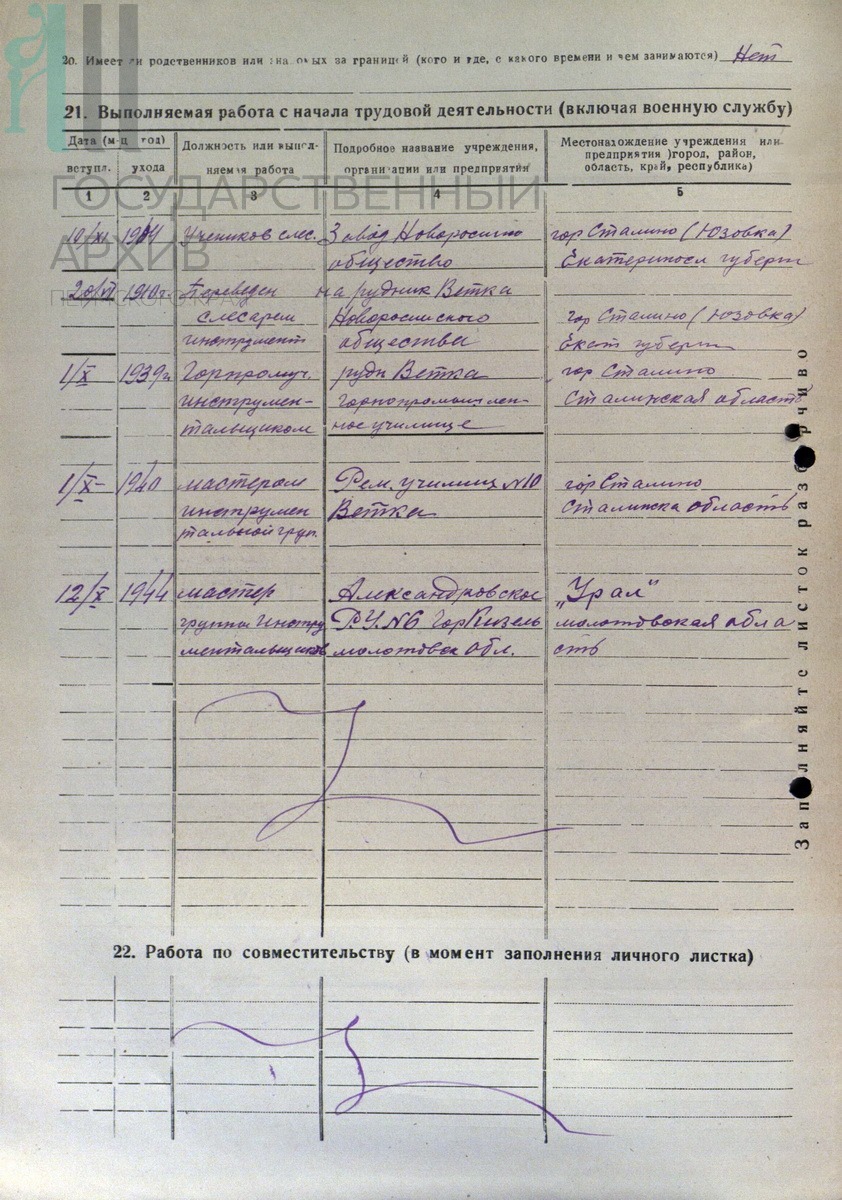 20. Имеет ли родственников или знакомых за границей (кого и где, с какого времени и чем занимаются) Нет
21. Выполняемая работа с начала трудовой деятельности (включая военную службу)
Дата (м-ц год)
вступл. ухода
Должность или выпол-
няемая работа
Подробное название учреждения,
организации или предприятия
Местонахождение учреждения или
предприятия )город, район,
область, край, республика)
1 2 3 4 5
ГОСУДАРСТВЕННЫЙ
АРХИВ
Учеников слес. Завод Новоросийко гор Сталино (Юзовка)
общество Екатериносл губерн
1910г. Переведен на рудник Ветка
слесарем Новоросийского гор Сталино (Юзовка)
инструмент общества Екат губерн
1/X 1939г. Горпромуч. рудн Ветка гор Сталино
инструмен- горнопромышлен- Сталинская область
тальщиком ное училище
1/X- 1940 мастером Рем. училищ №10 гор Сталино
инструмен Ветка Сталинска область
тальной груп.
12/X 1944 мастер Александровское „Урал"
группы Инстру Р.У. №6 Гор Кизель молотовская обла
ментальщиков молотовск обл. сть
22. Работа по совместительству (в момент заполнения личного листка)
Заполняйте листок разборчиво